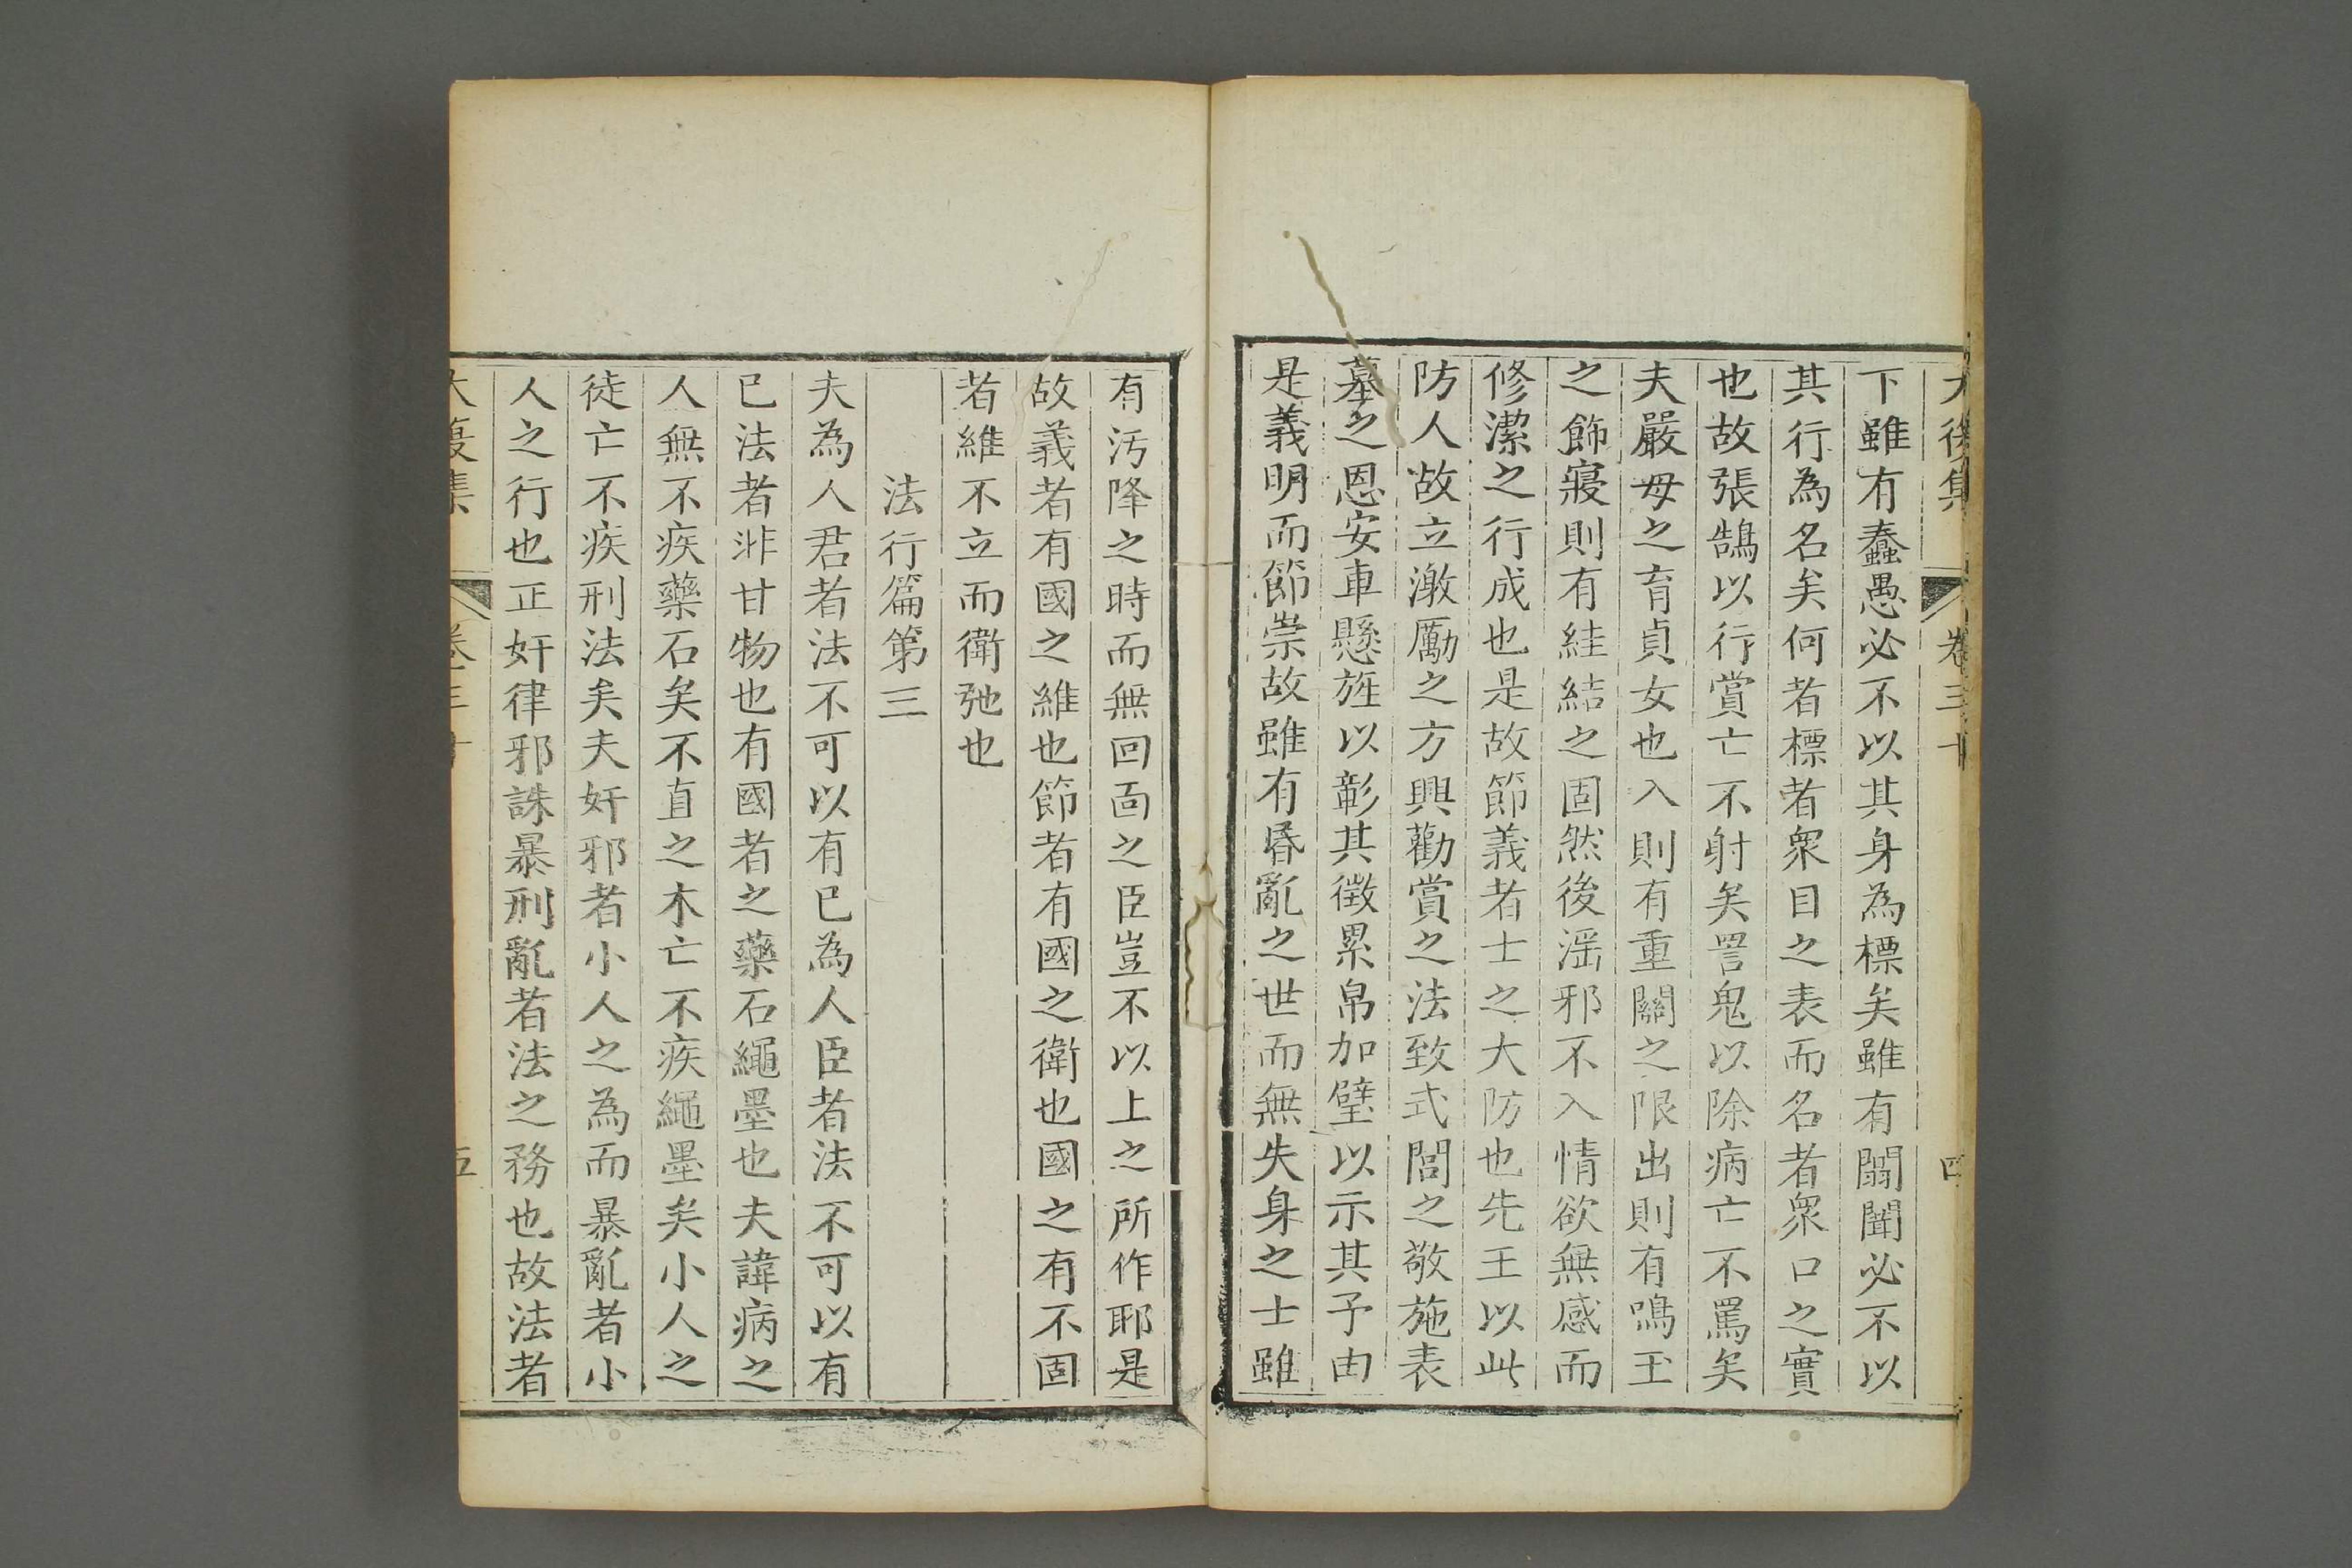 下雖有蠢愚必不以其身為標矣雖有闒闠必不以
其行為名矣何者標者衆目之表而名者衆口之實
也故張鵠以行賞亡不射矣詈鬼以除病亡不罵矣
夫嚴母之育貞女也入則有重關之限出則有鳴玉
之飾寢則有絓結之固然後滛邪不入情欲無感而
修潔之行成也是故節義者士之大防也先王以此
防人故立激厲之方興勸賞之法致式閭之敬施表
墓之恩安車懸旌以彰其徵累帛加璧以示其予由
是義明而節崇故雖有昬亂之世而無失身之士雖
有汚降之時而無回面之臣豈不以上之所作耶是
故義者有國之維也節者有國之衛也國之有不固
者維不立而衛弛也
法行篇第三
夫為人君者法不可以有已為人臣者法不可以有
已法者非甘物也有國者之藥石繩墨也夫諱病之
人無不疾藥石矣不直之木亡不疾繩墨矣小人之
徒亡不疾刑法矣夫奸邪者小人之為而暴亂者小
人之行也正奸律邪誅暴刑亂者法之務也故法者